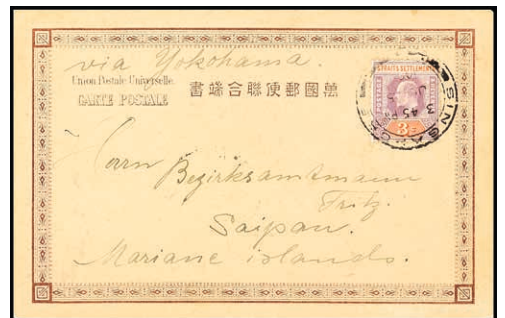 via Yokohama.
Union Postale Universelle.
CARTE POSTALE
萬國郵便聯合端書
STRAITS SETTLEMENTS
POSTAGE
3c
SINGAPORE
Herrn Bezirksamtmann
Fritz.
Saipan.
Mariane islands.